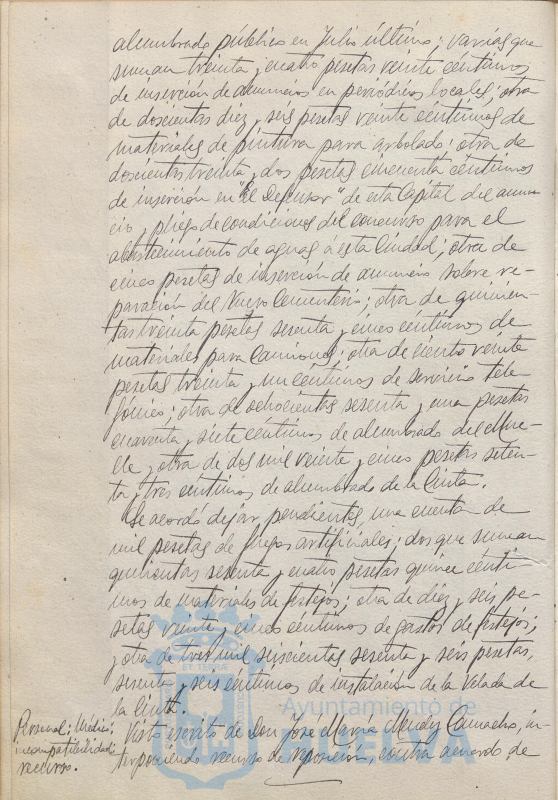 alumbrado público en Julio último; varias que
suman treinta y cuatro pesetas veinte céntimos
de inserción de anuncios en periódicos locales; otra
de doscientas diez y seis pesetas veinte céntimos de
materiales de pintura para arbolado; otra de
doscientas treinta y dos pesetas cincuenta céntimos
de inserción en "El Defensor" de esta Capital del anun-
cio y pliego de condiciones del concurso para el
abastecimiento de aguas á esta Ciudad; otra de
cinco pesetas de inserción de anuncio sobre re-
paración del Nuevo Cementerio; otra de quinien-
tas treinta pesetas sesenta y cinco céntimos de
materiales para Camiones; otra de ciento veinte
pesetas treinta y un céntimos de servicio tele-
fónico; otra de ochocientas sesenta y una pesetas
cuarenta y siete céntimos de alumbrado del Mue-
lle y otra de dos mil veinte y cinco pesetas seten-
ta y tres céntimos de alumbrado de la Cinta.
Se acordó dejar pendientes, una cuenta de
mil pesetas de fuegos artificiales; dos que suman
quinientas sesenta y cuatro pesetas quince cénti-
mos de materiales de festejos; otra de diez y seis pe-
setas veinte y cinco céntimos de gastos de festejos;
y otra de tres mil seiscientas sesenta y seis pesetas,
sesenta y seis céntimos de instalación de la Velada de
la Cinta.
Personal: Médico:
incompatibilidad:
recurso.
Visto escrito de Don José María Mendez Camacho, in-
terponiendo recurso de reposición, contra acuerdo de
Ayuntamiento de
HUELVA